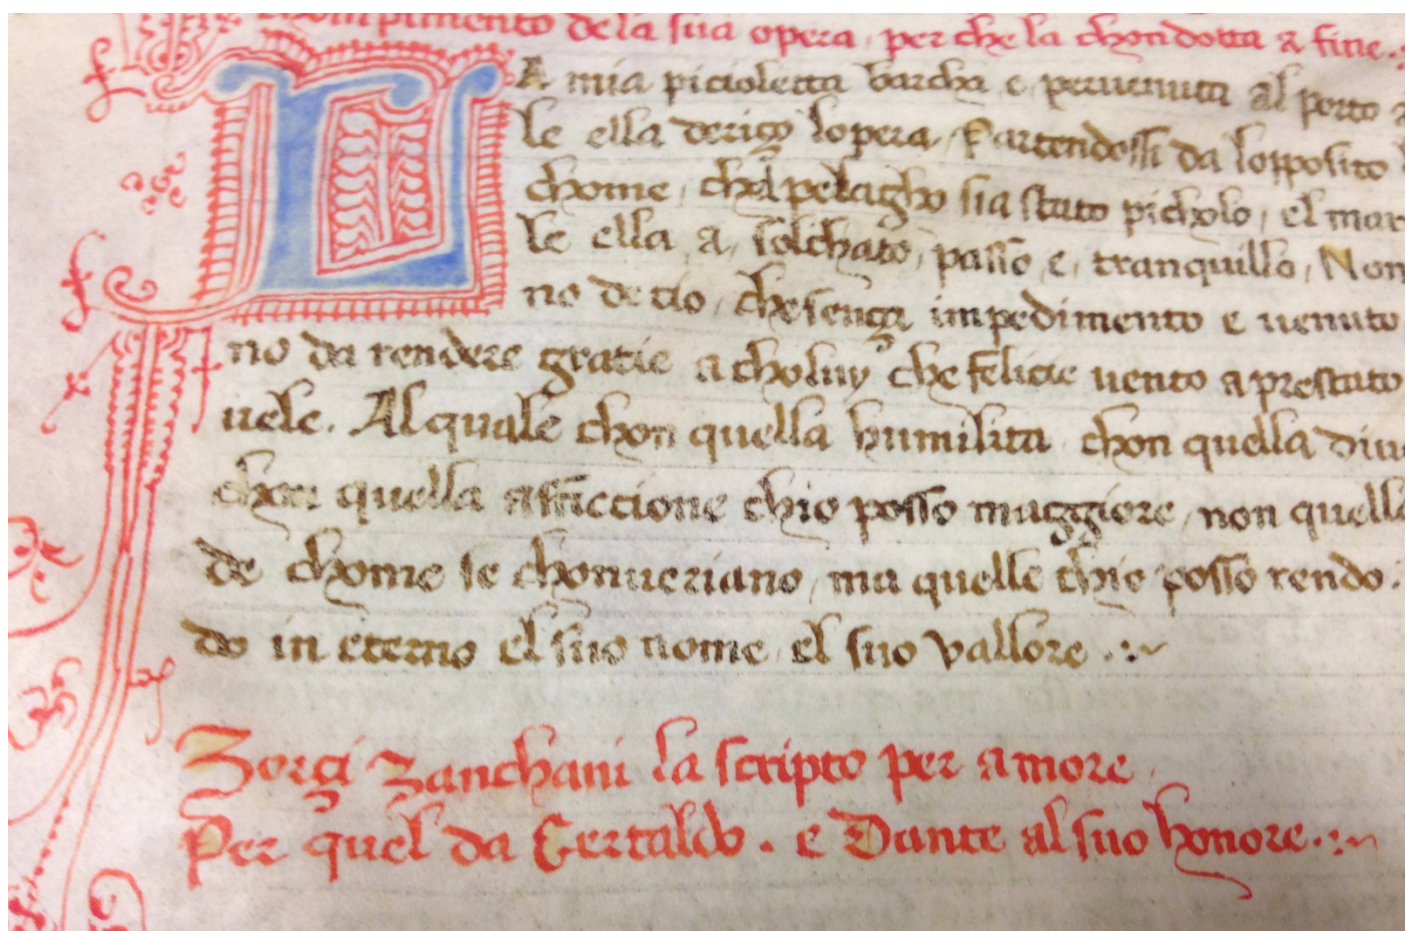 chompimento de la sua opera, per che la chondotta a fine.
LA mia picioletta barcha e, peruenuta al porto a
le ella derizo lopera, Partendossi da lopposito
chome, chel pelagho sia stato picholo, el mar
le ella a, solchato, passo e, tranquillo, Non
no de cio, che senza impedimento e uenuto
no da rendere gratie a choluy che felicie uento a prestato
uele. Al quale chon quella humilita chon quella diu
chon quella affictione chio posso maggiore, non quella
de chome se chonueriano, ma quelle chio posso rendo.
do in eterno el suo nome, el suo vallore .:~
Zorzi Zanchani la scripto per amore
Per quel da Certaldo . e Dante al suo honore.:~